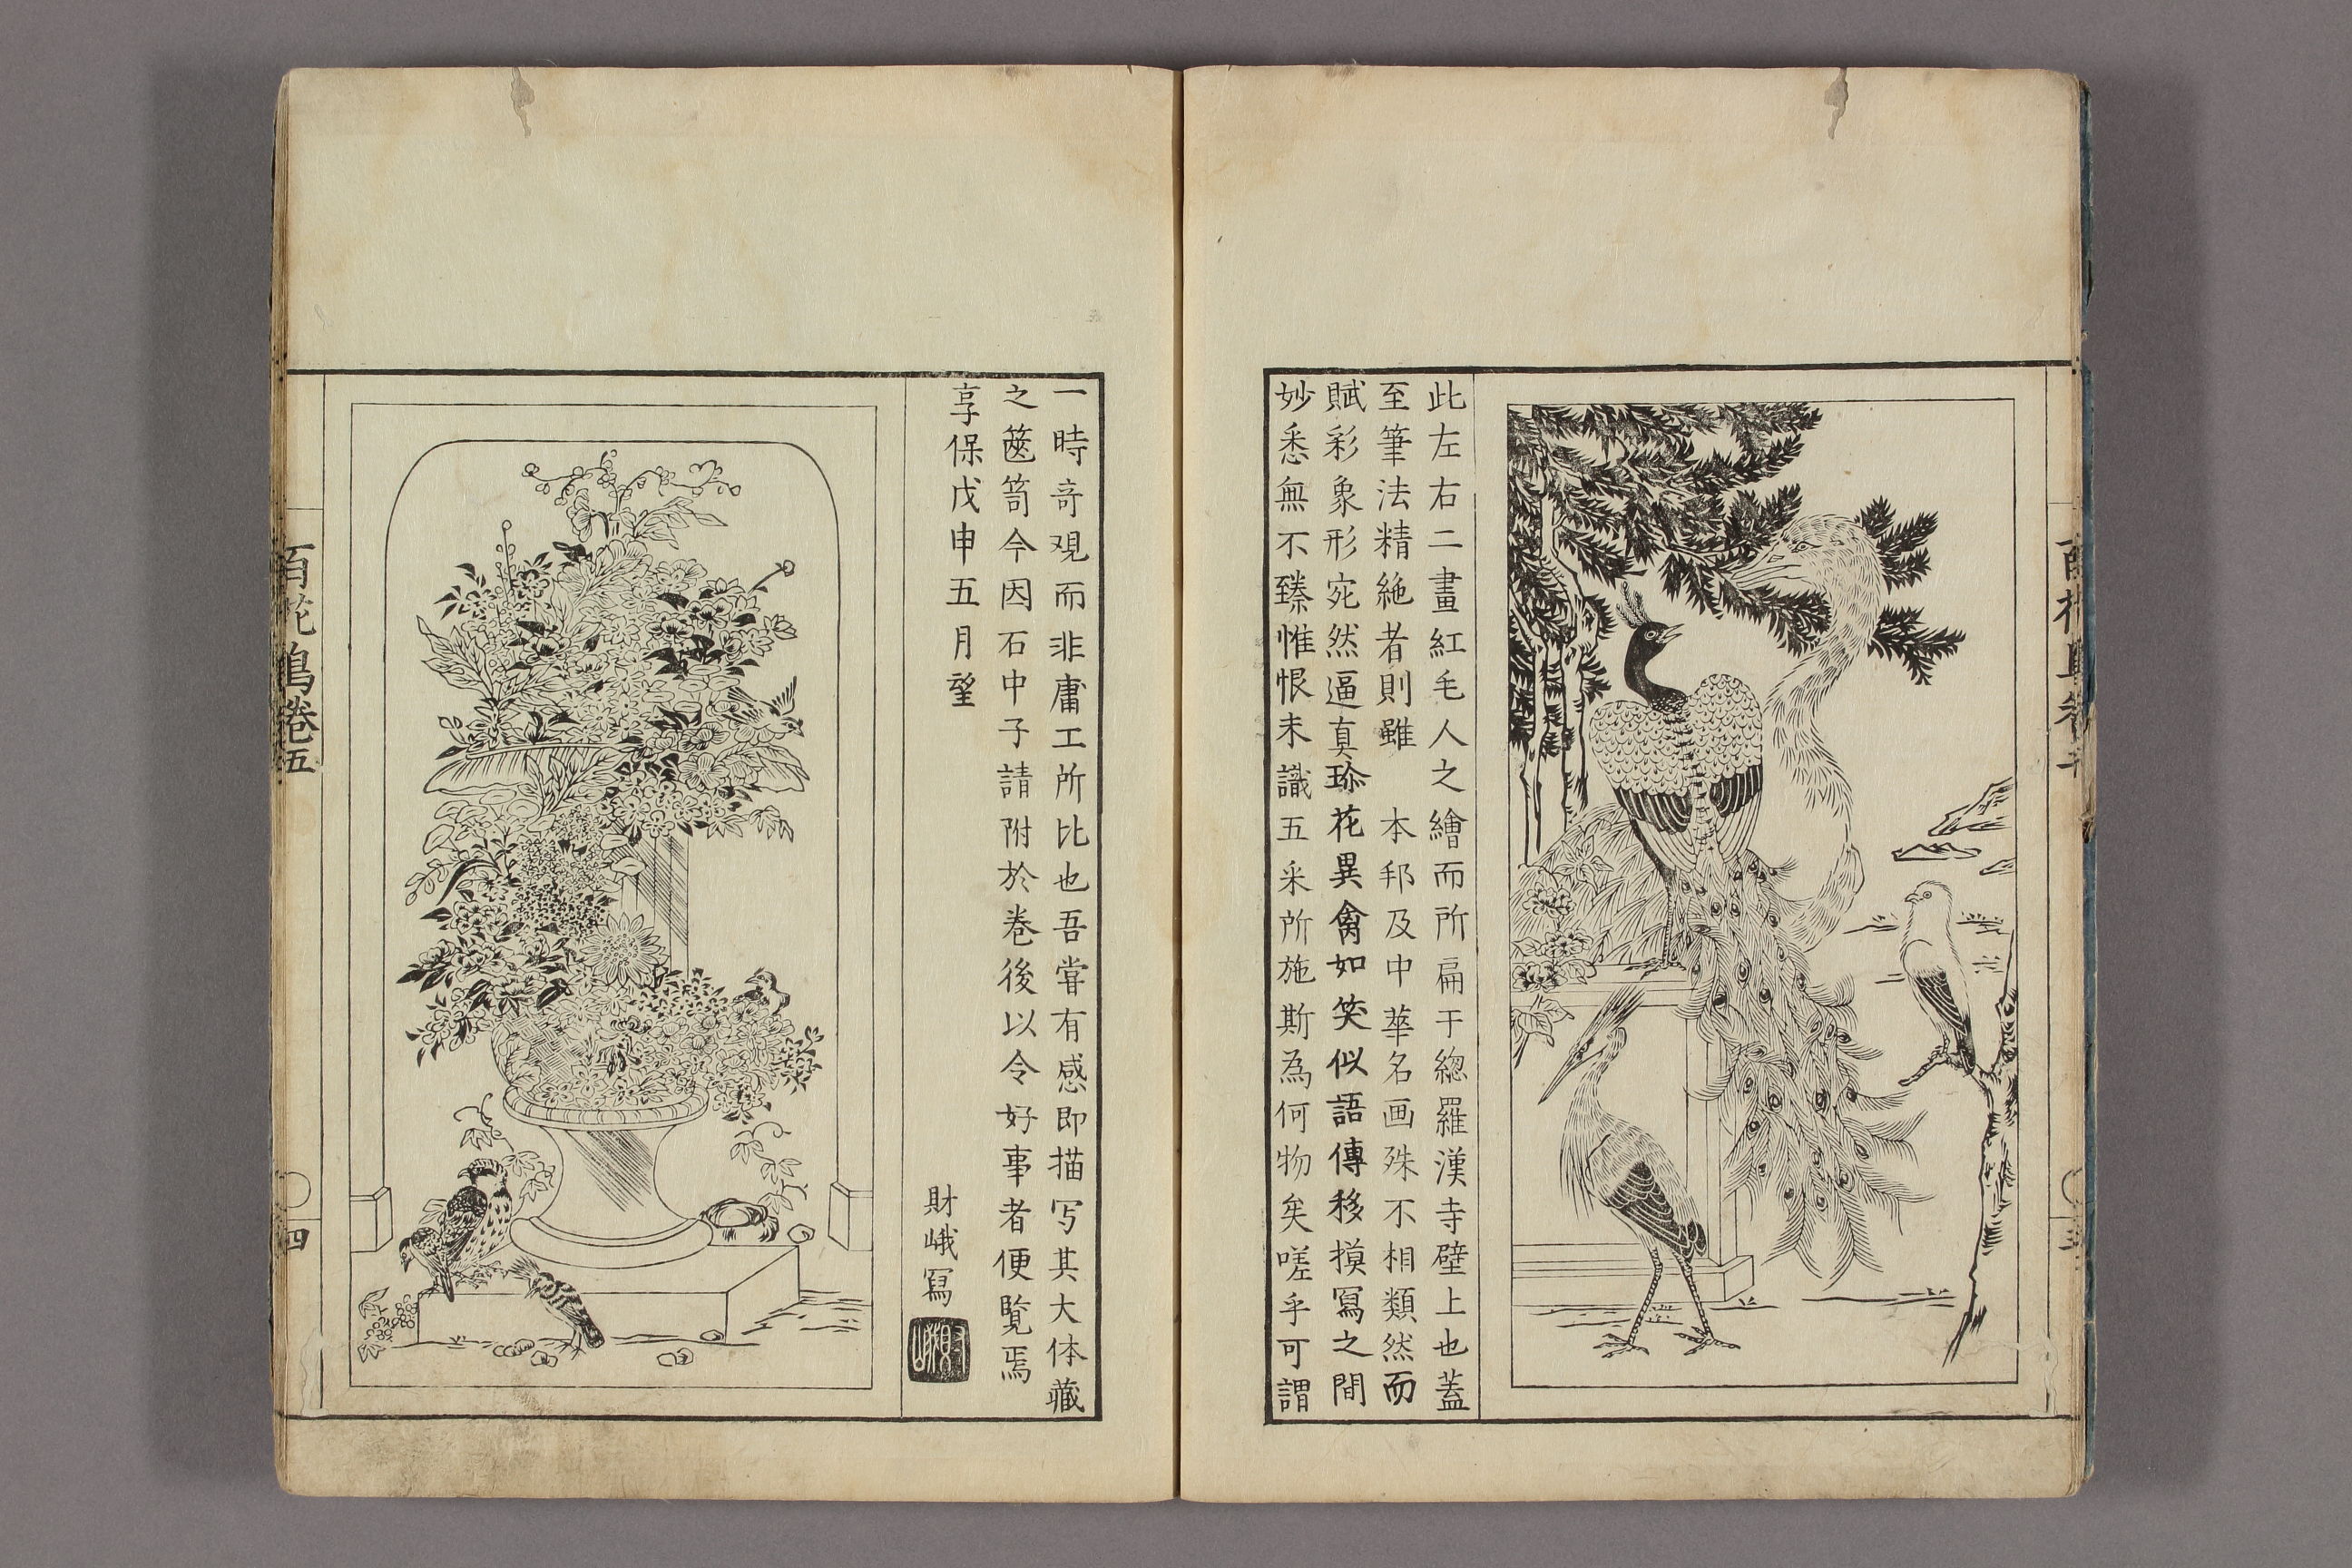 此左右二畫紅毛人之繪而所扁于總羅漢寺壁上也蓋
至筆法精絶者則雖　本邦及中華名画殊不相類然而
賦彩象形宛然逼真珎花異禽如笑似語傳移摸寫之間
妙悉無不臻惟恨未識五采所施斯為何物矣嗟乎可謂
一時奇观而非庸工所比也吾嘗有感即描写其大体藏
之篋笥今因石中子請附於卷後以令好事者便覧焉
享保戊申五月望
財峨寫
百花鳥卷五
四